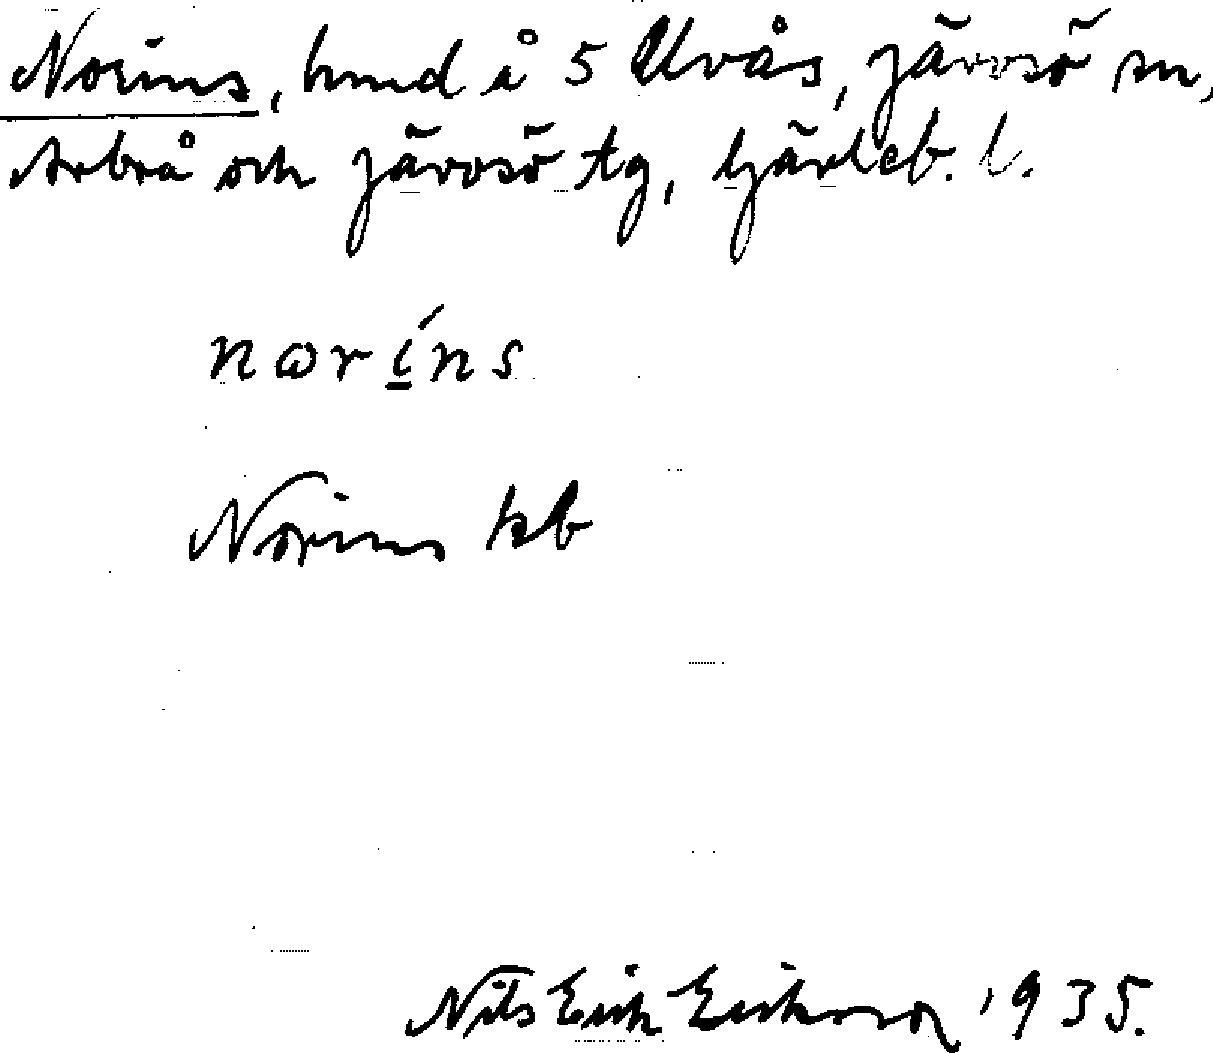 Norins, hmd å 5 Ulvås, Järvsö sn,
Arbrå och Järvsö tg, Gävleb. l.
noríns
Norins kb
Nils Erik Eriksson 1935.